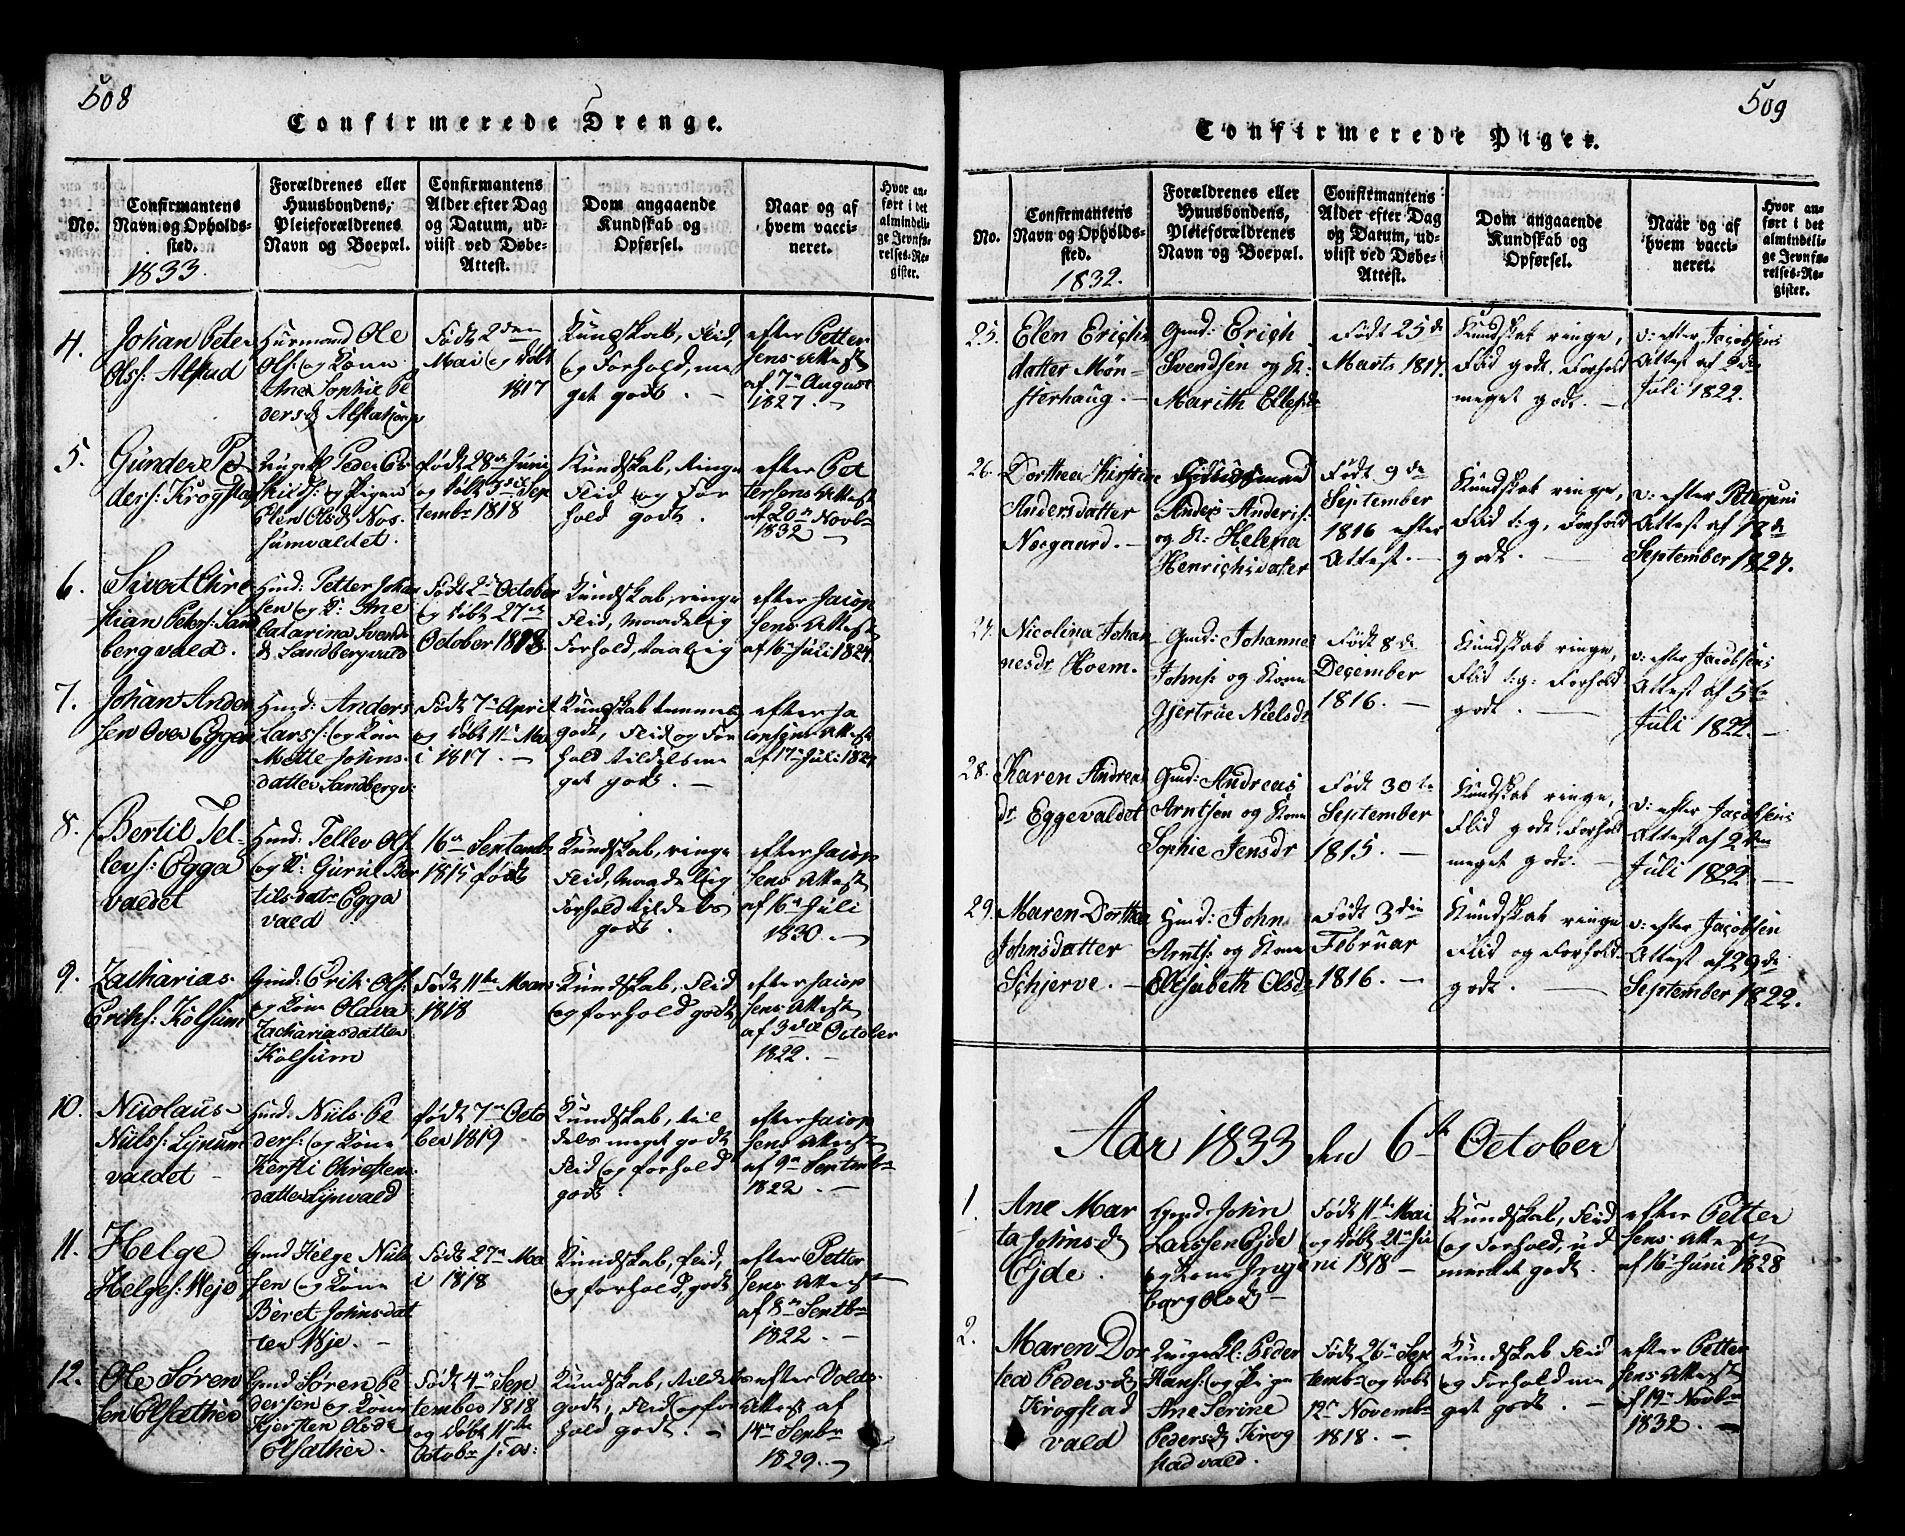 508
Confirmerede Drenge.
No.
Confirmantens
Navn og Opholds-
sted.
1833.
Forældrenes eller
Huusbondens,
Pleieforældrenes
Navn og Boepæl.
Confirmantens
Alder efter Dag
og Datum, ud-
viist ved Døbe-
Attest.
Dom angaaende
Kundskab og
Opførsel.
Naar og af
hvem vacci-
neret.
Hvor an-
ført i det
almindeli-
ge Jevnfø-
relses-Re-
gister.
4.
Johan Peter
Olss: Alstad
Huusmand Ole
Ols: og Kone
Ane Sophie Pe
dersd Alstad
Født 2den
Mai og døbt
1817
Kundskab, Flid,
og Forhold, me
get godt. -
efter Petter
sens Attest
af 7n August
1827. -
5.
Gunder Pe
ders: Krogstad
Ungk Peder Es
kilds: og Pigen
Elen Olsd Nos
sumvaldet.
født 28de Juni
og døbt 3die Sep
tembr 1818
Kundskab, ringe
Flid og For
hold godt.
efter Pet
tersens Attest
af 20n Novbr
1832
6.
Sivert Chri
stian Peters: Sand
bergvald.
Hmd: Petter Johan
sen og K: Ane
Catarina Svends
d Sandbergvald
Født 2n October
og døbt 27n
October 1818
Kundskab, ringe
Flid, maadelig
Forhold, taalig
efter Jacop
sens Attest
af 16n Juli 1824
7.
Johan Ander
sen Over Eggen
Hmd: Anders
Larss: og Kone
Mette Johns-
datter Sandbergv:
Født 7n April
og døbt 11n Ma
i 1817. -
Kundskab temmelig
godt, Flid og For
hold tildels me
get godt. -
efter Ja
copsens Attest
af 17n Juli 1824
8.
Bertil Tel-
levs: Egga
valdet
Hmd: Tellev Ols:
og K: Gurul Ber
tilsdatr Egga
vald
16n Septembr
1815 født
Kundskab, ringe
Flid, maadelig
Forhold tildels
godt.
efter Jacop
sens Attest
af 16n Juli
1830. -
9.
Zacharias
Eriks: Kolsum
Gmd: Erik Ols:
og Kone Olava
Zachariasdatter
Kolsum
Født 11te Mars
1818
Kundskab, Flid
og forhold godt
efter Jacop
sens Attest
af 3die October
1822. -
10.
Nicolaus
Nils: Lynum
valdet -
Hmd: Nils Pe
ders: og Kone
Kersti Christens
datter Lynvald
født 7n Octo
ber 1819
Kundskab, til
dels meget godt
Flid og forhold
godt.
efter Jacop
sens Attest
af 9n Septmbr
1822. -
11.
Helge
Helges: Mejo
Gmd Helge Nils
sen og Kone
Beret Johnsdat
ter Mje. -
Født 27n Ma
i 1818
Kundskab, flid,
og forhold, godt
efter Petter
sens Attest
af 8n Septbr
1822. -
12.
Ole Søren
sen Olsather
Gmd Søren Pe
dersen og Kone
Kjersten Olsdr
Olsather.
Født 4n Sep
tember 1818
og døbt 11te
Octobr s: a:
Kundskab, tildels
godt, Flid og for
hold godt. -
efter Volds
Attest af
14n Septbr
1829. -
509
Confirmerede Piger.
No.
Confirmantens
Navn og Opholds-
sted.
1832.
Forældrenes eller
Huusbondens,
Pleieforældrenes
Navn og Boepæl.
Confirmantens
Alder efter Dag
og Datum, ud-
viist ved Døbe-
Attest.
Dom angaaende
Kundskab og
Opførsel.
Naar og af
hvem vacci-
neret.
Hvor an-
ført i det
almindeli-
ge Jevnfø-
relses-Re-
gister.
25.
Elen Erichs
datter Møn-
sterhaug. -
Gmd: Erich
Svendsen og K:
Marith Ellefsdr
Født 25de
Marts 1817.
Kundskab ringe,
Flid godt, Forhold
meget godt. -
v: efter Jacobsens
Attest af 2den
Juli 1822.
26.
Dorthea Kirstine
Andersdatter
Norgaard. -
Anders Anders:
og K: Helena
Henrichsdatter
Født 9de
September
1816 efter
Attest. -
Kundskab ringe,
Flid t: g, Forhold
godt. -
v: efter Petersens
Attest af 18de
September 1827.
27.
Nicolina Johan
nesdr. Hoem.
Gmd: Johannes
Johns: og Kone
Gjertrue Nielsdr
Født 8de
December
1816. -
Kundskab ringe,
Flid t: g: Forhold
godt. -
v: efter Jacobsens
Attest af 5te
Juli 1822. -
28.
Karen Andreas
dr. Eggevaldet
Gmd: Andreas
Arntsen og Kone
Sophie Jensdr
Født 30te
September
1815. -
Kundskab ringe,
Flid godt, Forhold
meget godt. -
v: efter Jacobsens
Attest af 2den
Juli 1822. -
29.
Maren Dorthea
Johnsdatter
Schjerve. -
Hmd: John
Arnts: og Kone
Elisabeth Olsdr
Født 3die
Februar
1816. -
Kundskab ringe
Flid og Forhold
godt. -
v: efter Jacobsen
Attest af 29de
September 1822.
Aar 1833 den 6te October
1.
Ane Mar
ta Johnsd
Ejde.
Gmd John
Larssen Ejde
og Kone Inge
borg Olsd -
Født 11te Mai
og døbt 21n Ju
ni 1818 -
Kundskab, Flid
og Forhold, ud
mærket godt.
efter Petter
sens Attest
af 16n Juni 1828
2.
Maren Dor
tea Pedersd
Krogstad
vald
Ungkl: Peder
Hans: og Pige
Ane Serine
Pedersd Krog
stadvald.
Født 26n Sep
tembr og døbt
12n Novembr
1818. -
Kundskab Flid
og Forhold me
get godt. -
efter Petter
sens Attest
af 19n Novbr
1832. -